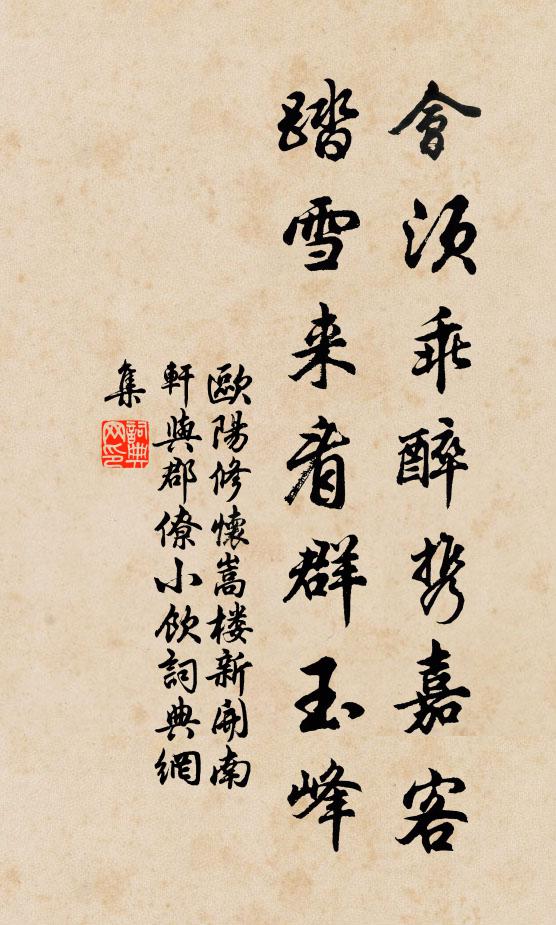 會須乘醉携嘉客
踏雪来看群玉峰
歐陽修懷嵩楼新開南
軒與郡僚小飲詞典網
集
詞典网印